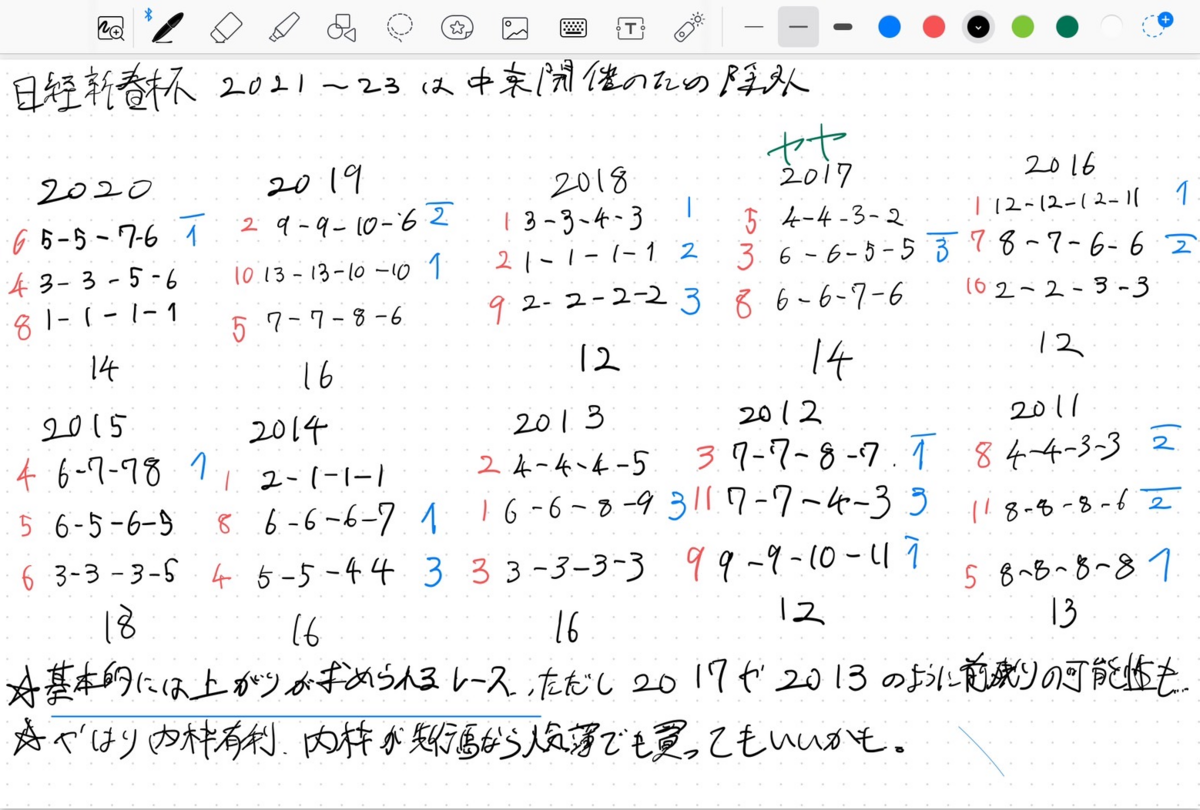 日経新春杯 2021～23は中京開催のための除外
ヤヤ
2020 2019 2018 2017 2016
6 5-5-7-6 1 2 9-9-10-6 2 1 3-3-4-3 1 5 4-4-3-2 1 12-12-12-11 1
4 3-3-5-6 10 13-13-10-10 1 2 1-1-1-1 2 3 6-6-5-5 3 7 8-7-6-6 2
8 1-1-1-1 5 7-7-8-6 9 2-2-2-2 3 8 6-6-7-6 10 2-2-3-3
14 16 12 14 12
2015 2014 2013 2012 2011
4 6-7-78 1 1 2-1-1-1 2 4-4-4-5 3 7-7-8-7 1 8 4-4-3-3 2
5 6-5-6-5 8 6-6-6-7 1 1 6-6-8-9 3 11 7-7-4-3 3 11 8-8-8-6 2
6 3-3-3-5 4 5-5-44 3 3 3-3-3-3 9 9-9-10-11 1 5 8-8-8-8 1
18 16 16 12 13
☆基本的には上がりが求められるレース、ただし2017や2013のように前残りの可能性も…
☆やはり内枠有利、内枠が先行馬なら人気薄でも買ってもいいかも。